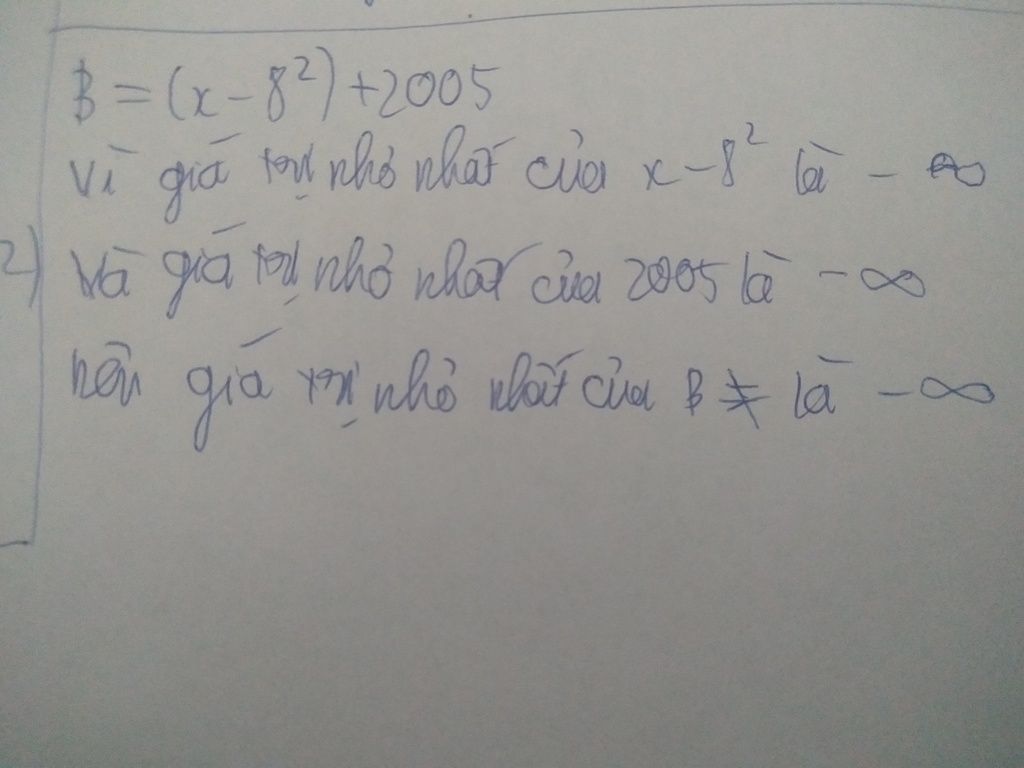 B = (x - 8²) + 2005
Vì giá trị nhỏ nhất của x - 8² là - ∞
2) Và giá trị nhỏ nhất của 2005 là - ∞
nên giá trị nhỏ nhất của B là - ∞